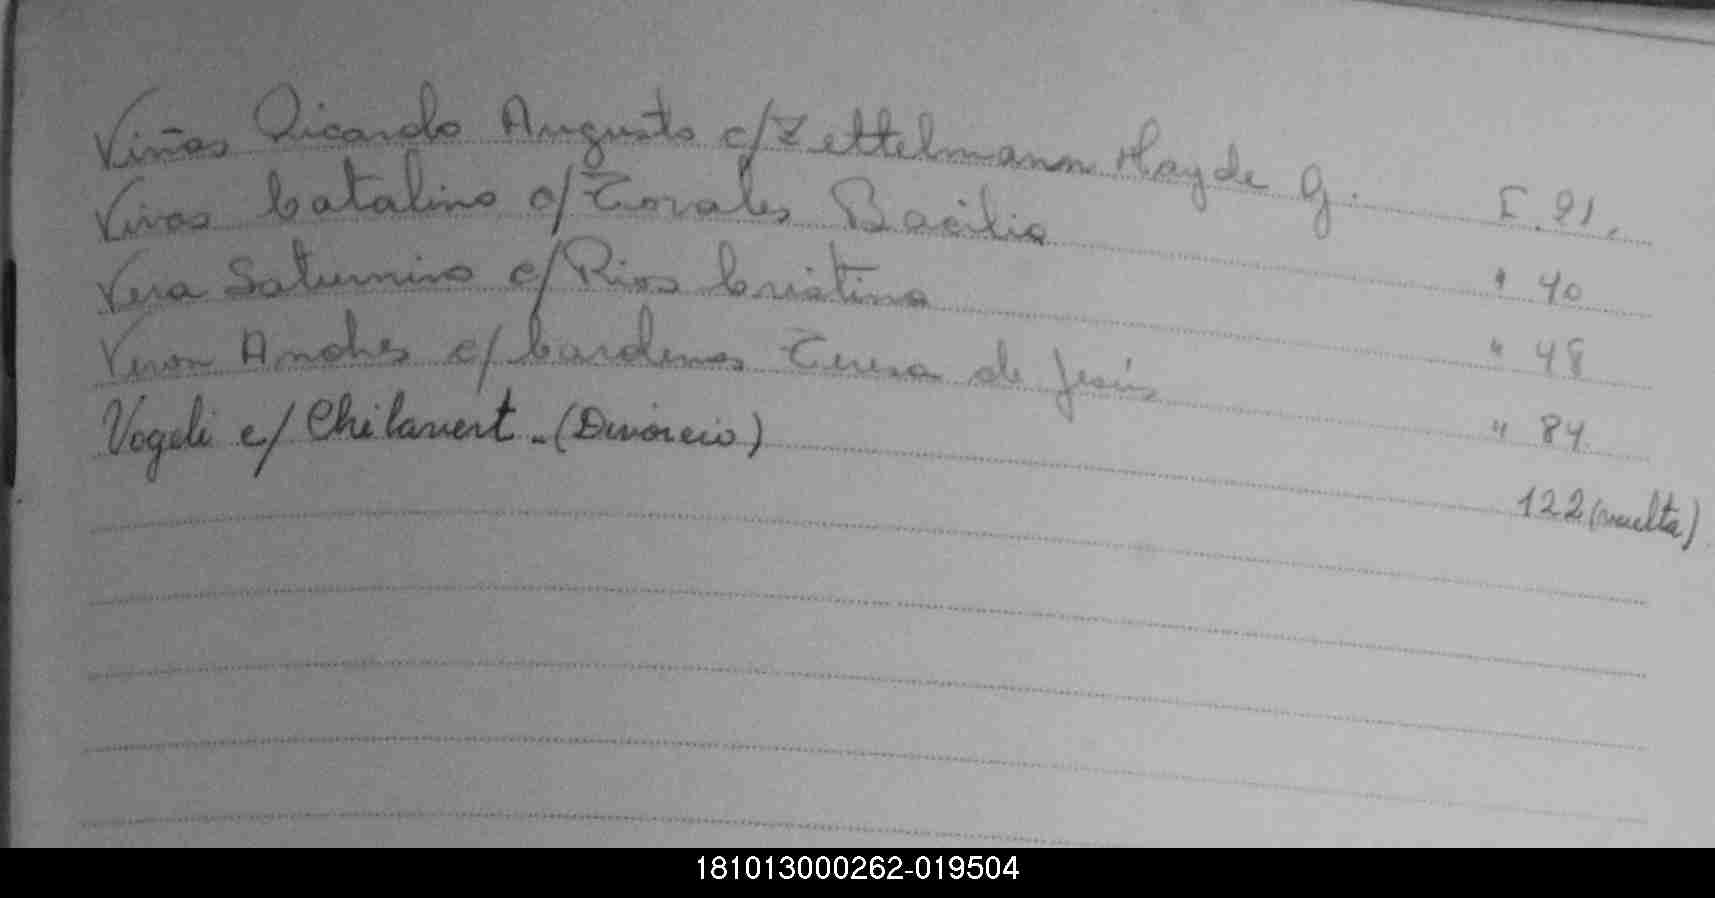 Viñas Ricardo Augusto c/ Zettelmann Hayde G. F. 21.
Vivas Catalino c/ Torales Bacilia " 40
Vera Saturnino c/ Rios Cristina " 48
Veron Andres c/ Cardenas Teresa de Jesús " 84
Vogeli c/ Chilavert - (Divorcio) 122 (vuelta)
181013000262-019504